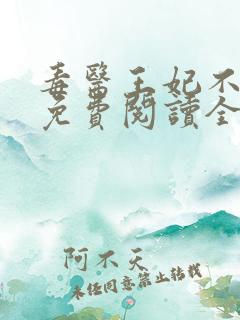 毒醫王妃不
免費閱讀全
阿不天
未經同意禁止轉載